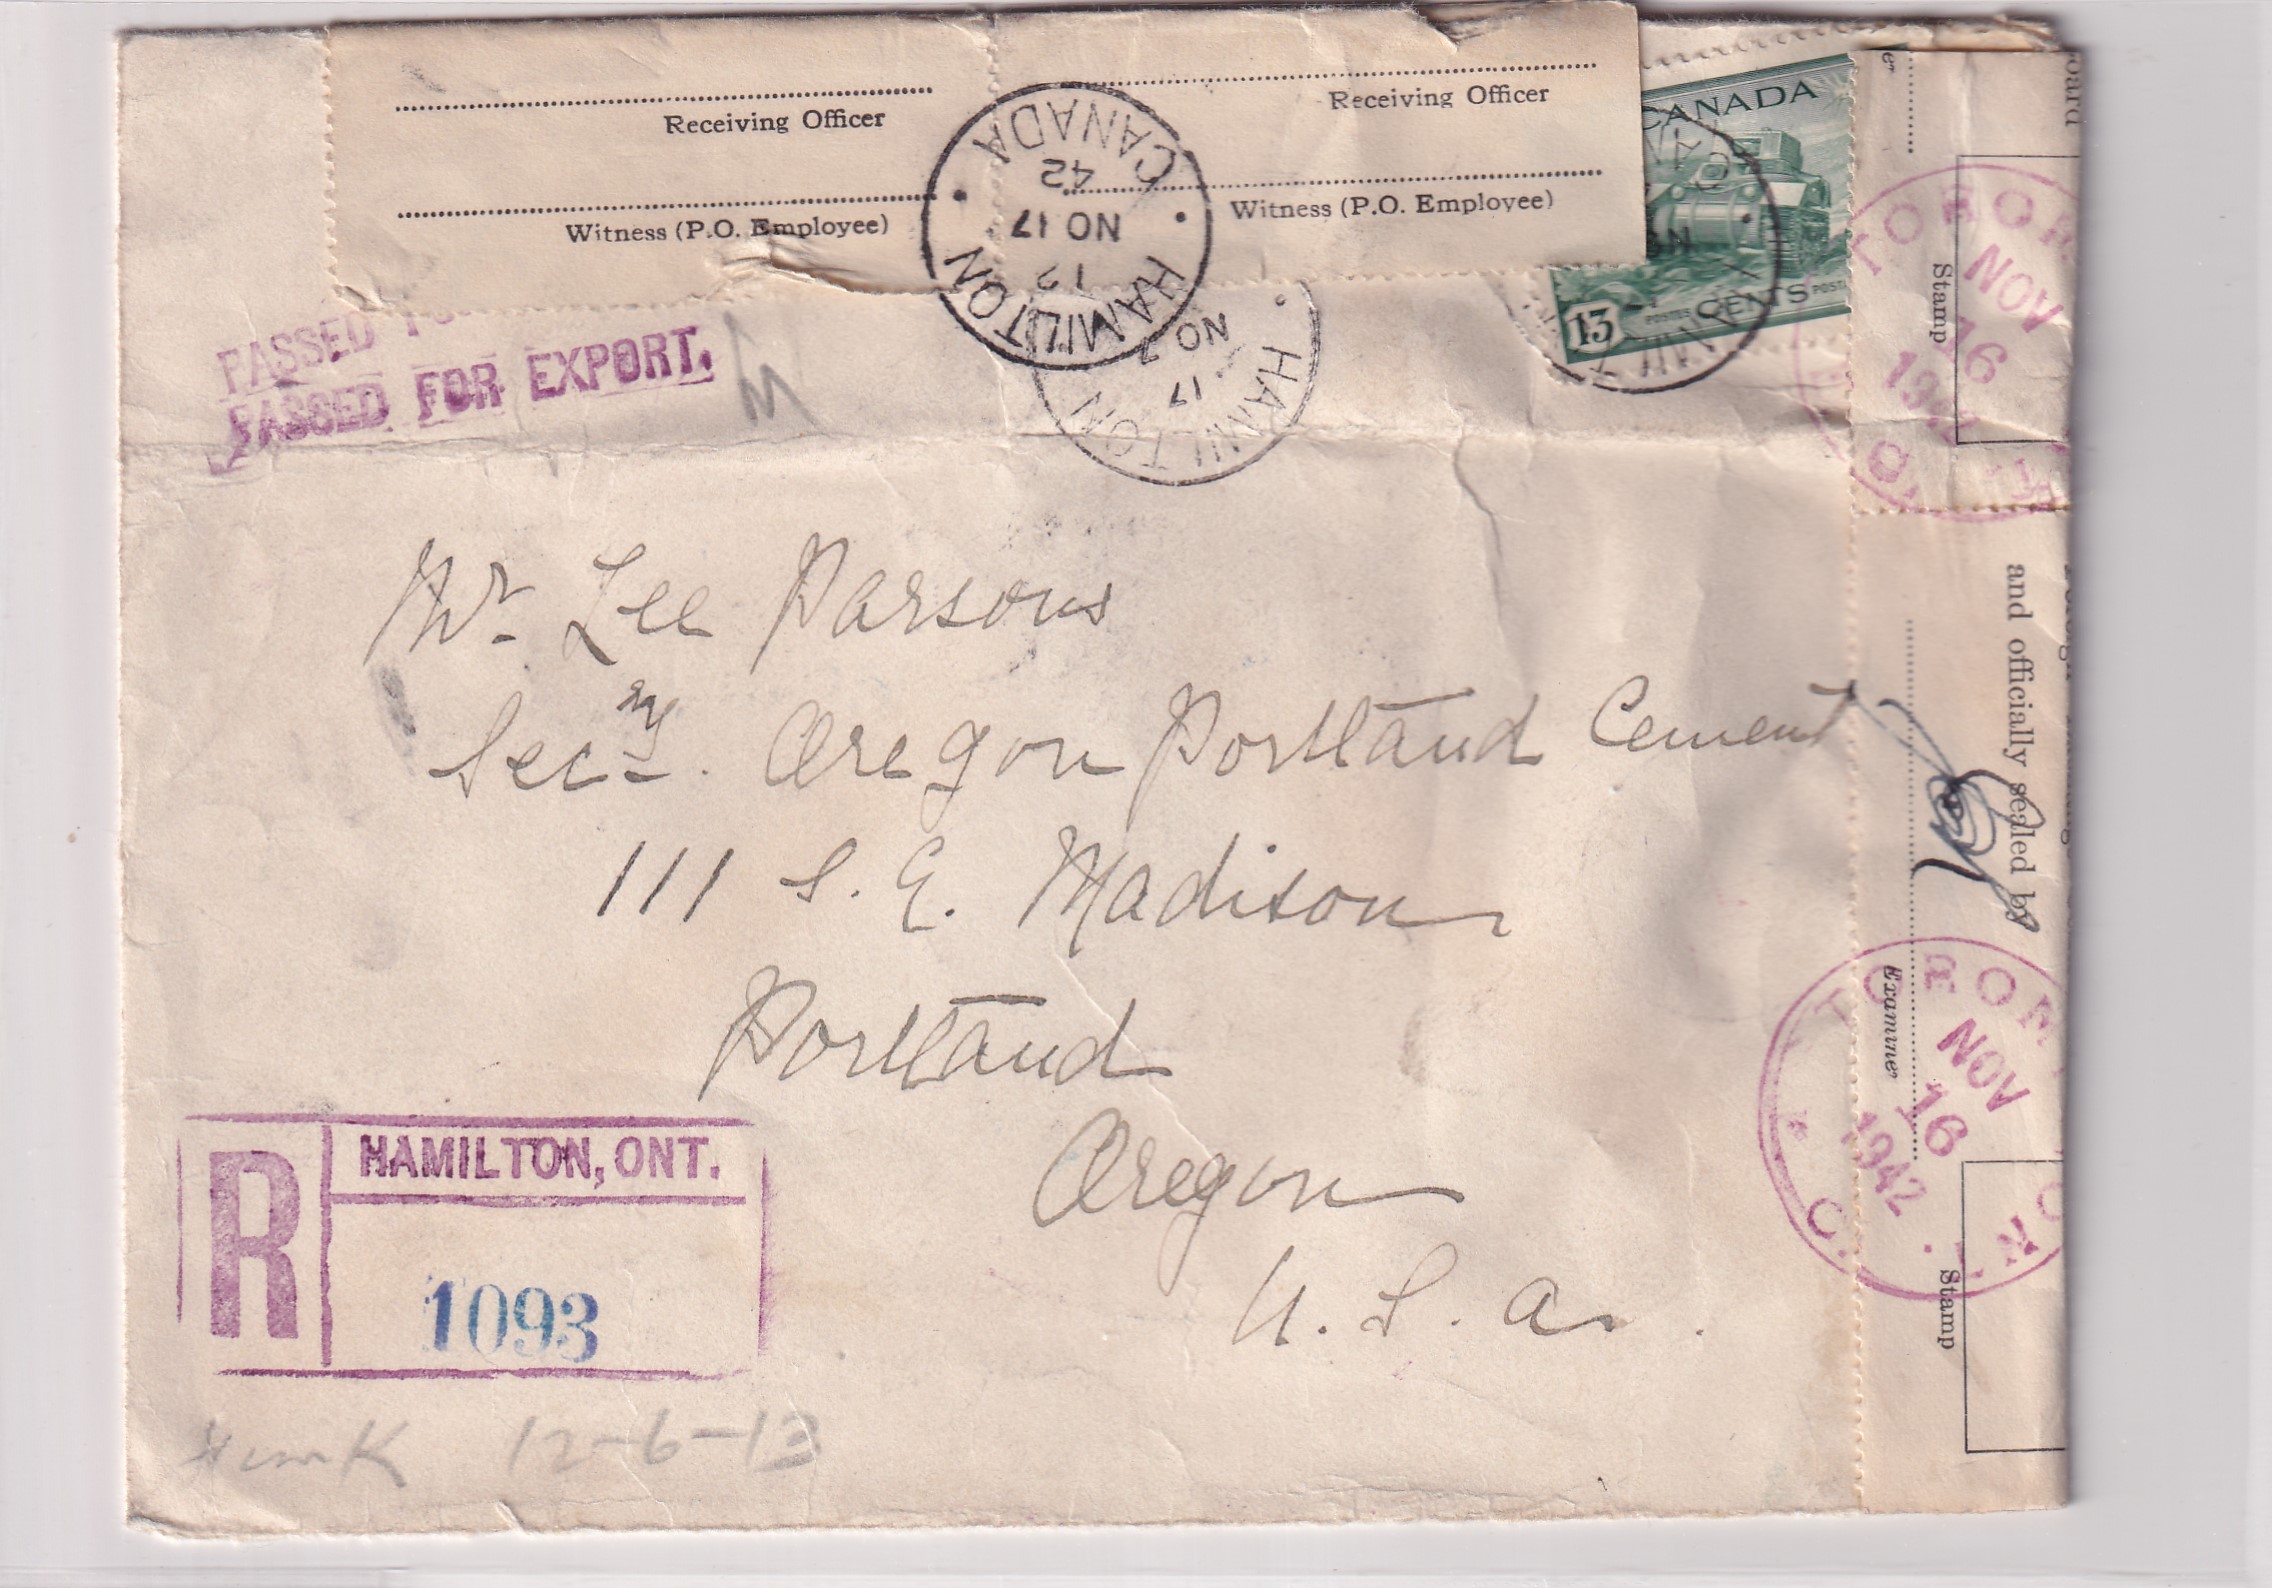 Receiving Officer
Witness (P.O. Employee)
Receiving Officer
Witness (P.O. Employee)
HAMILTON
12
NO 17
42
CANADA
HAMILTON
17
NO 7
CANADA
13 POSTES CENTS
PASSED
PASSED FOR EXPORT.
Mr. Lee Parsons
Sec'y. Oregon Portland Cement
111 S. E. Madison
Portland
Oregon
U. S. A.
R
HAMILTON, ONT.
1093
12-6-13
Stamp
TORON
NOV
16
1942
and officially sealed by
Examine
TORON
NOV
16
1942
Stamp